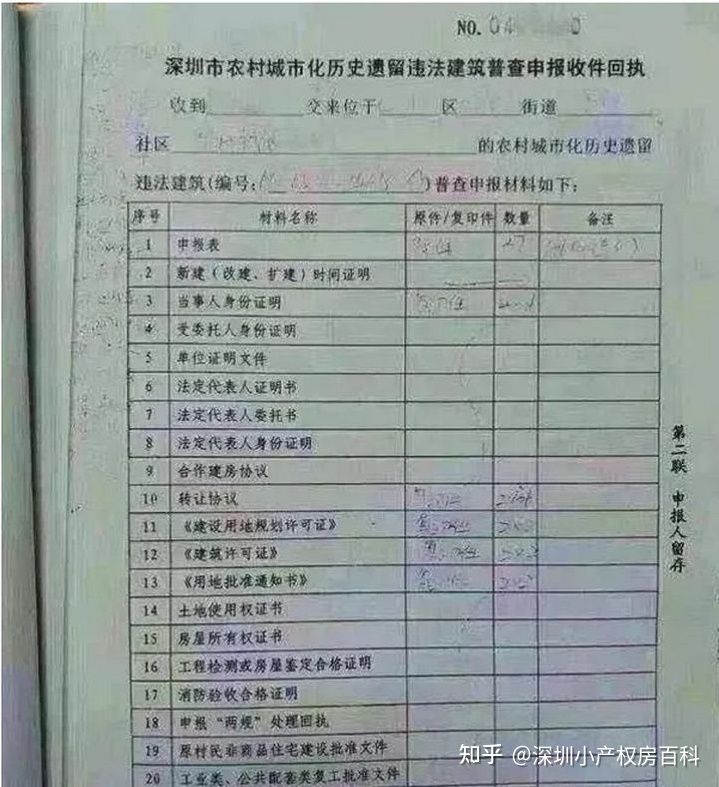 NO. 04 0
深圳市农村城市化历史遗留违法建筑普查申报收件回执
收到 交来位于 区 街道
社区 的农村城市化历史遗留
违法建筑(编号: )普查申报材料如下:
序号 材料名称 原件/复印件 数量 备注
1 申报表
2 新建(改建、扩建)时间证明
3 当事人身份证明
4 受委托人身份证明
5 单位证明文件
6 法定代表人证明书
7 法定代表人委托书
8 法定代表人身份证明
9 合作建房协议
10 转让协议
11 《建设用地规划许可证》
12 《建筑许可证》
13 《用地批准通知书》
14 土地使用权证书
15 房屋所有权证书
16 工程检测或房屋鉴定合格证明
17 消防验收合格证明
18 申报“两规”处理回执
19 原村民非商品住宅建设批准文件
20 工业类、公共配套类复工批准文件
第二联 申报人留存
知乎 @深圳小产权房百科